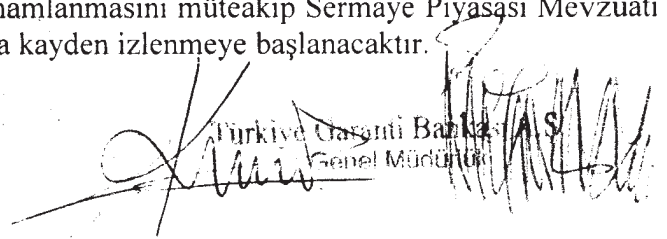 namlanmasını müteakip Sermaye Piyasası Mevzuatı
a kayden izlenmeye başlanacaktır.
Türkiye Garanti Bankası A.Ş.
Genel Müdürlük